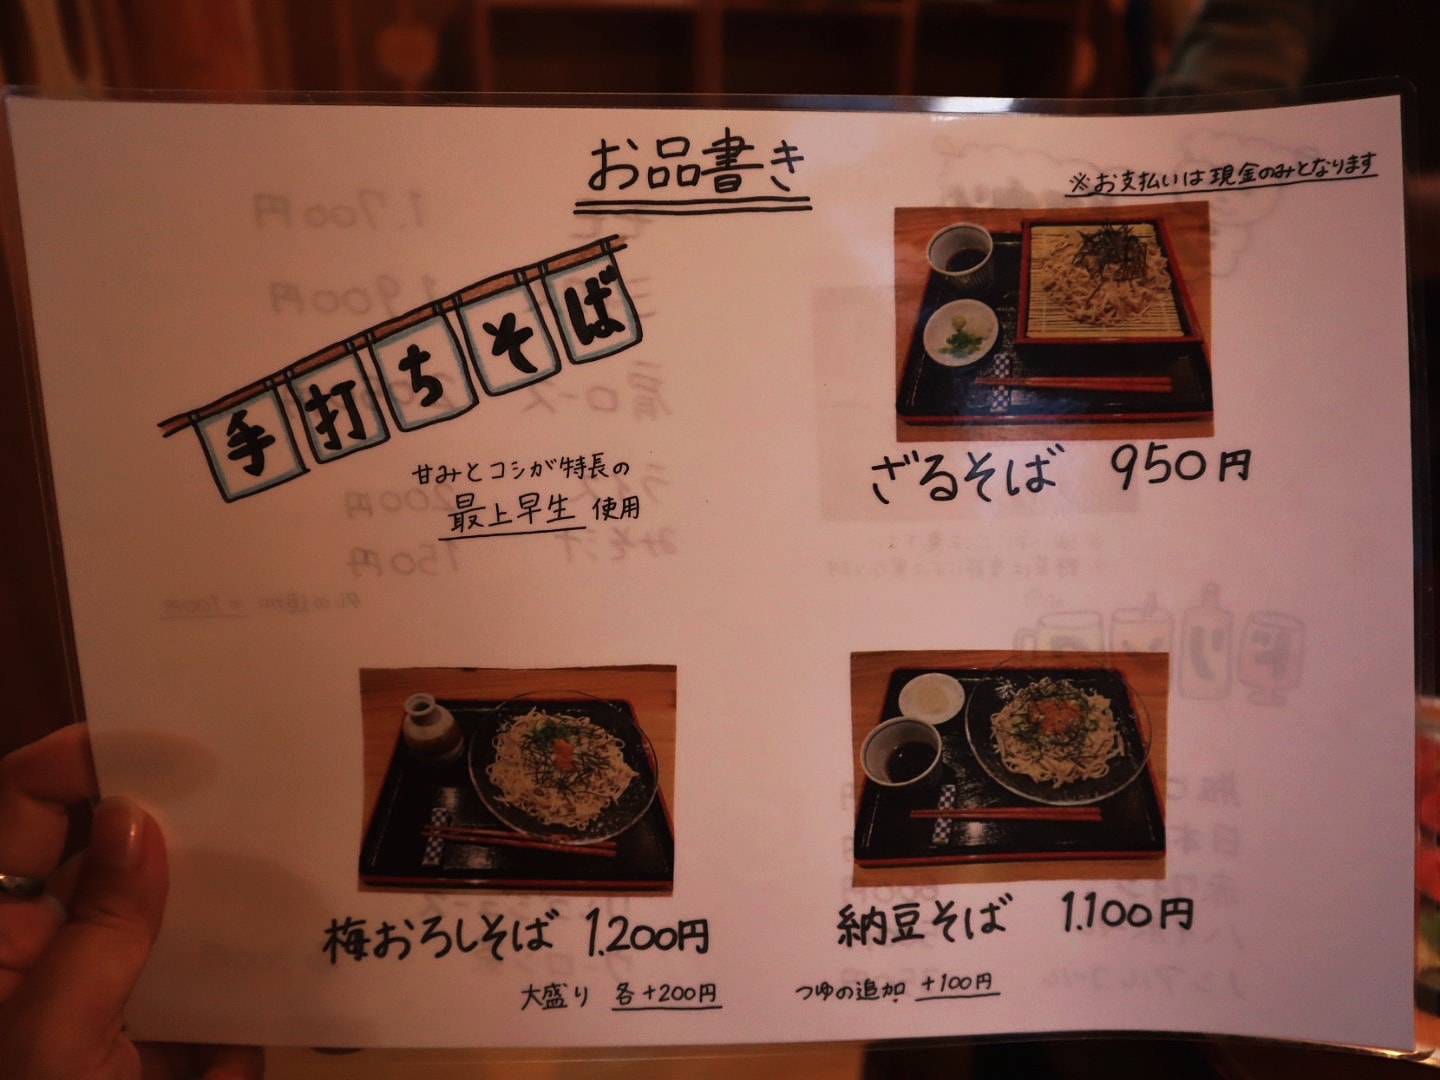 お品書き
※お支払いは現金のみとなります
手打ちそば
甘みとコシが特長の
最上早生 使用
ざるそば 950円
梅おろしそば 1.200円
納豆そば 1.100円
大盛り 各+200円
つゆの追加 +100円